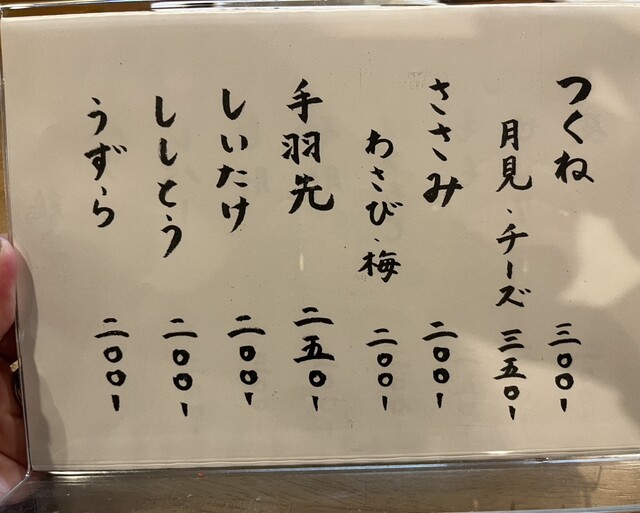 つくね 三〇〇ー
月見・チーズ 三五〇ー
ささみ 二〇〇ー
わさび・梅 二〇〇ー
手羽先 二五〇ー
しいたけ 二〇〇ー
ししとう 二〇〇ー
うずら 二〇〇ー